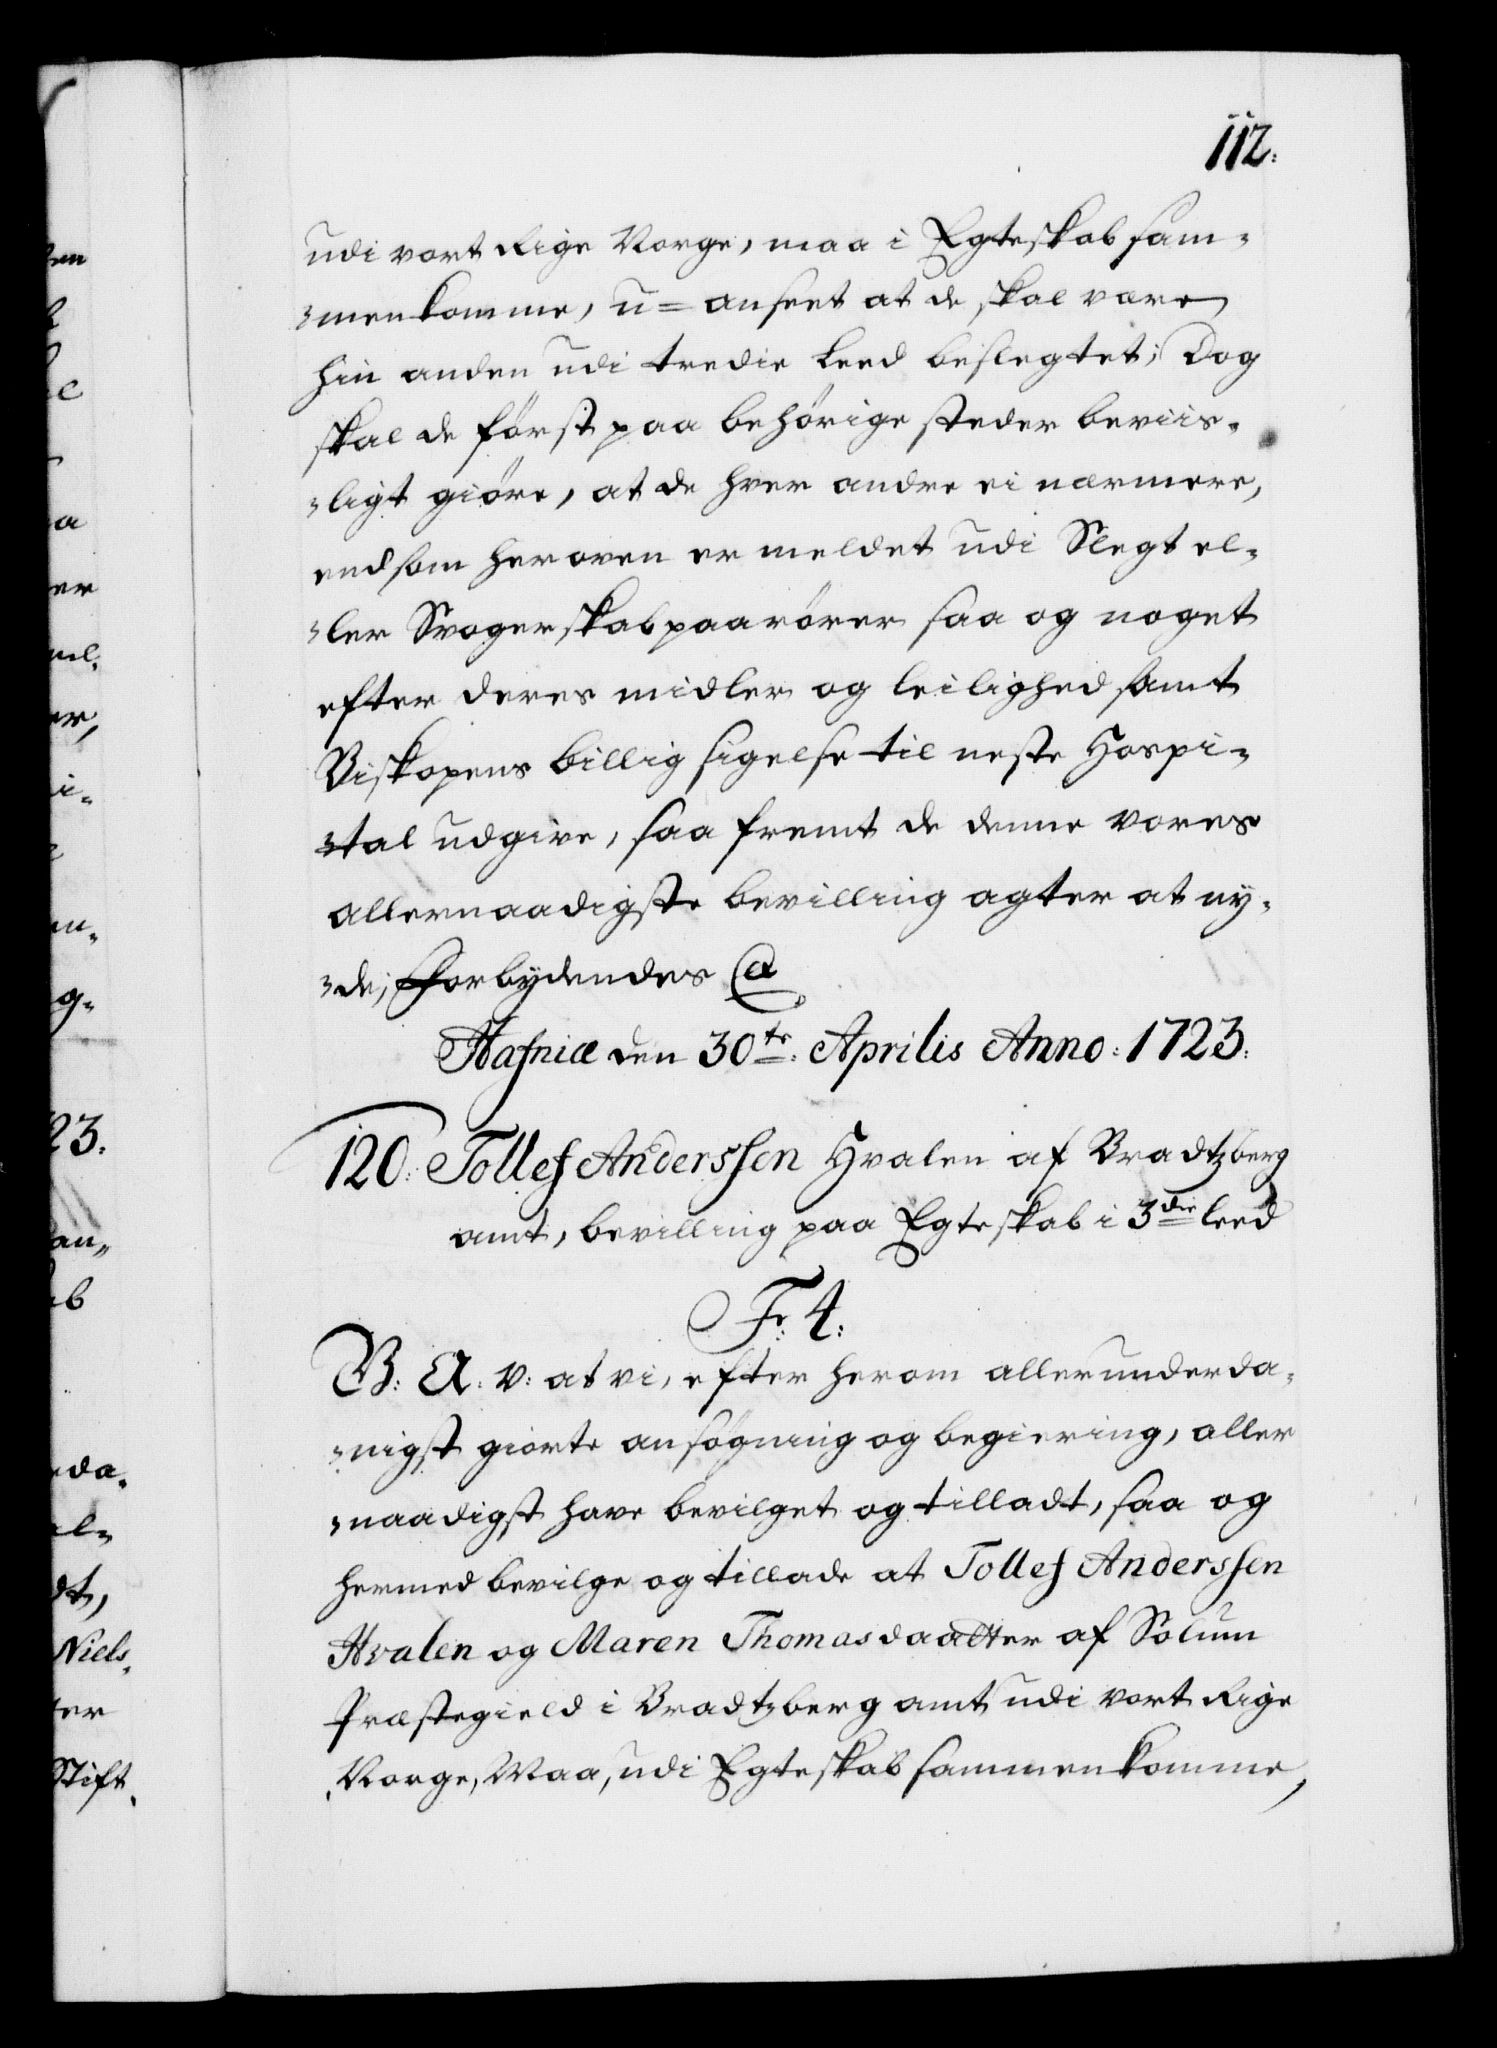 112.
udi vort Rige Norge, maa i Egteskab sam-
-menkomme, u=anseet at de skal være
hin anden udi tredie Leed beslegtet; Dog
skal de først paa behørige steder beviis-
-ligt giøre, at de hver andre ei nærmere,
end som heroven er meldet udi Slegt el-
-ler Svogerskab paarører saa og noget
efter deres midler og leilighed samt
Biskopens billig sigelse til neste Hospi-
-tal udgive, saa fremt de denne vores
allernaadigste bevilling agter at ny-
-de; Forbydendes &
Hafniæ den 30te. Aprilis Anno: 1723.
120. Tollef Anderssen Hvalen af Bradtzberg
amt, bevilling paa Egteskab i 3die leed
Fr. 4:
B: A: V: at vi, efter herom allerunderda-
-nigst giorte ansøgning og begiering, aller
-naadigst have bevilget og tilladt, saa og
hermed bevilge og tillade at Tollef Anderssen
Hvalen og Maren Thomasdaatter af Solum
Præstegield i Bradtzberg amt udi vort Rige
Norge, Maa, udi Egteskab sammenkomme,